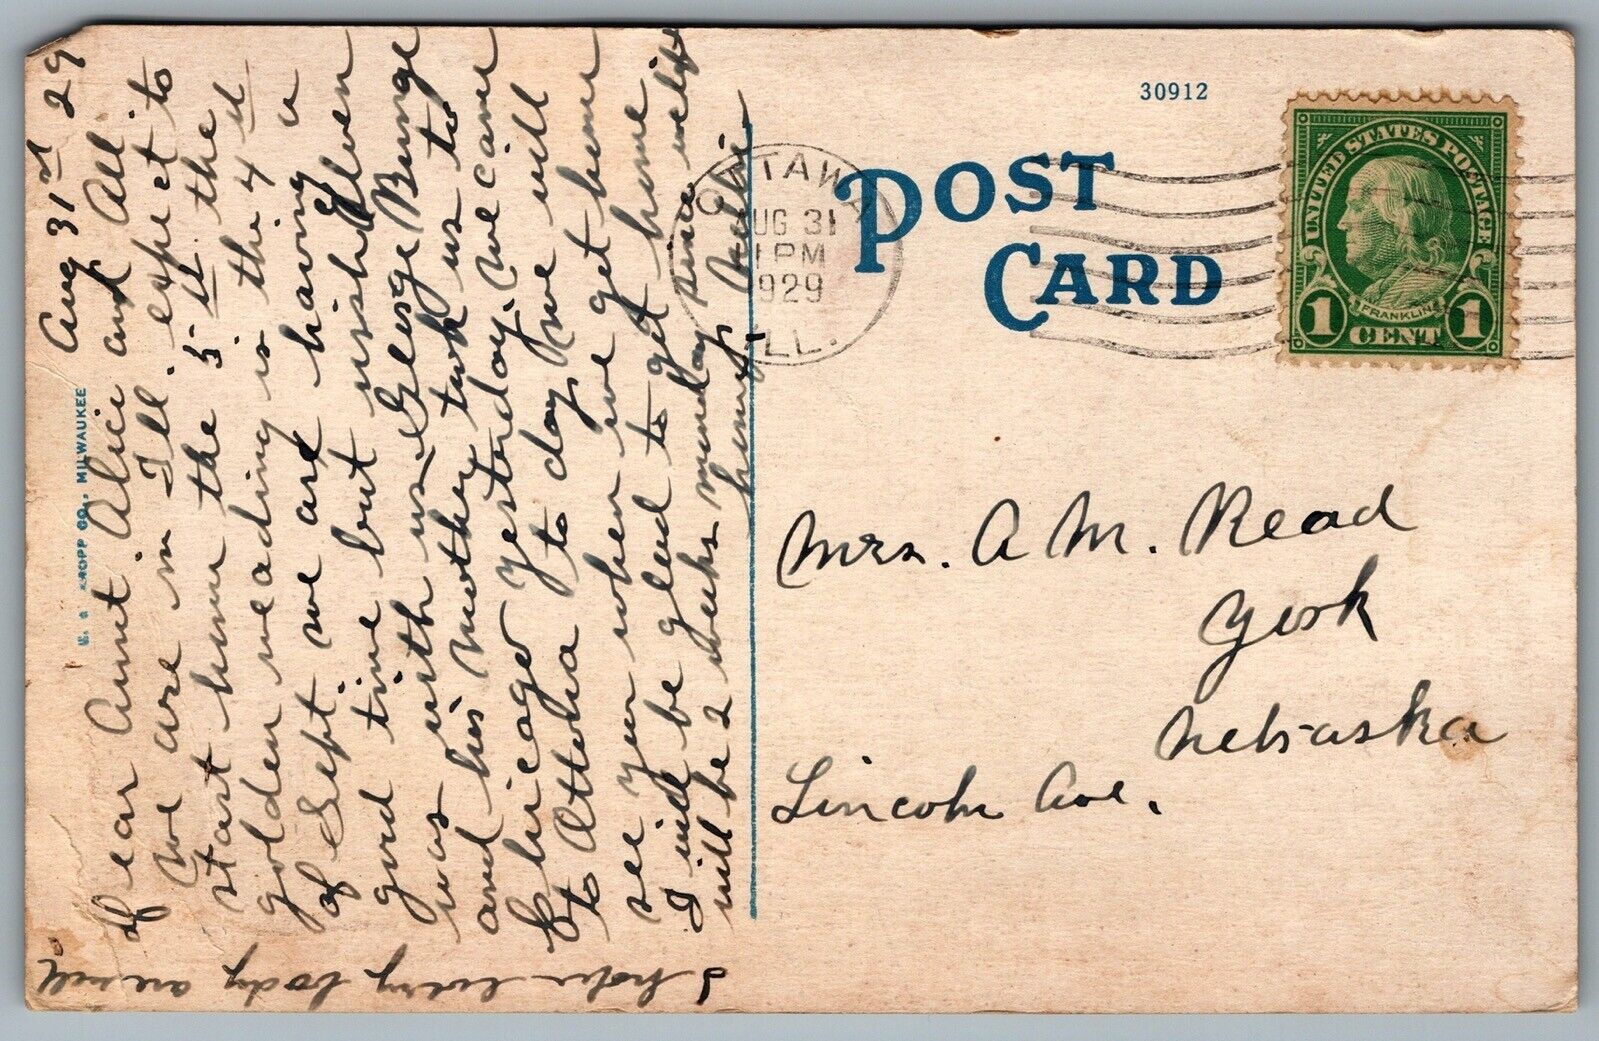 Aug 31st 29
Dear Aunt Alice and All.
We are in Ill. expect to
start home the 5 it the
golden weading is the 4 it
of Sept. we are having a
good time but wish you
was with us. George Bunge
and his Mother took us to
Chicago Yesterday. We came
to Ottawa to day. We will
see you when we get home
I will be glad to get home
will be 2 weeks monday since we left
home.
I hope every body are well
E. C. KROPP CO., MILWAUKEE
30912
POST
CARD
OTTAWA
AUG 31
1 PM
1929
ILL.
UNITED STATES POSTAGE
FRANKLIN
1 CENT 1
Mrs. A M. Read
York
Nebraska
Lincoln Ave.